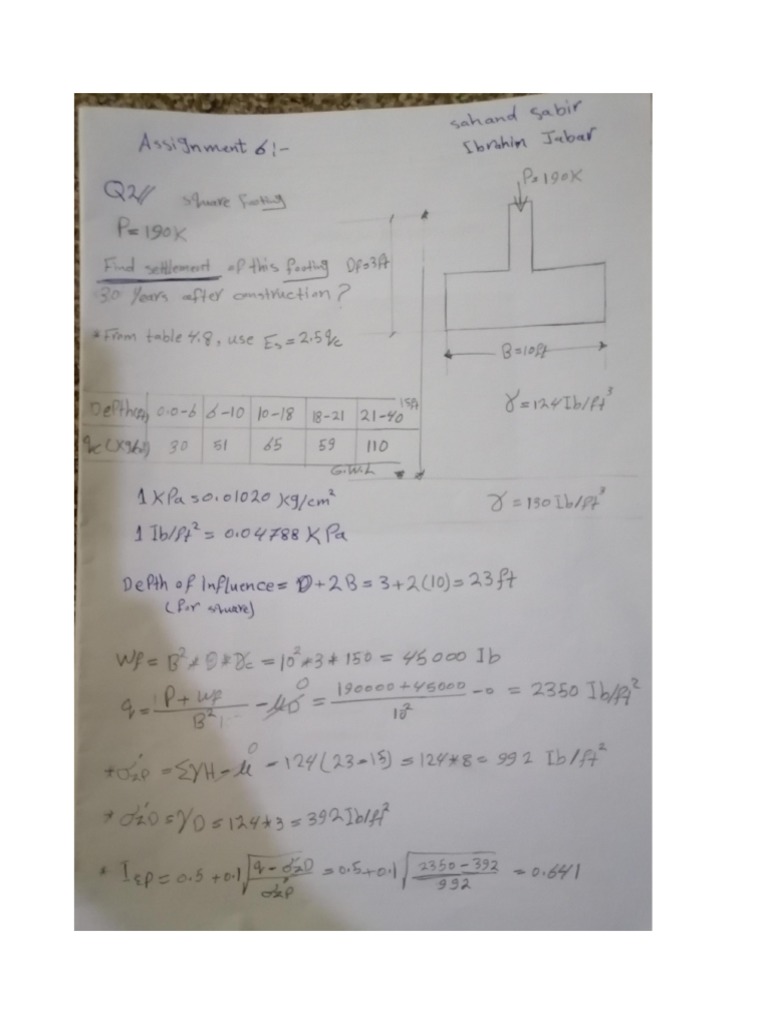 Assignment 6:-
sahand sabir
Ibrahim Jabar
Q2// square footing
P=190K
P=190K
Find settlement of this footing Df=3ft
30 years after construction?
*From table 4.8, use Es=2.5qc
B=10ft
γ=124 Ib/ft³
15ft
Depth(ft) 0.0-6 6-10 10-18 18-21 21-40
30 51 65 59 110
G.W.L
1 KPa = 0.01020 kg/cm²
γ = 130 Ib/ft³
1 Ib/ft² = 0.04788 KPa
Depth of Influence = D+2B = 3+2(10) = 23ft
(for square)
Wf = B² * D * γc = 10² * 3 * 150 = 45000 Ib
q = (P + wf)/B² - μD⁰ = (190000 + 45000)/10² - 0 = 2350 Ib/ft²
* σ'zp = ΣγH - μ⁰ - 124(23-15) = 124*8 = 992 Ib/ft²
* σ'zD = γD = 124*3 = 392 Ib/ft²
* Iεp = 0.5 + 0.1√((q - σ'zD)/σ'zp) = 0.5+0.1√((2350-392)/992) = 0.641